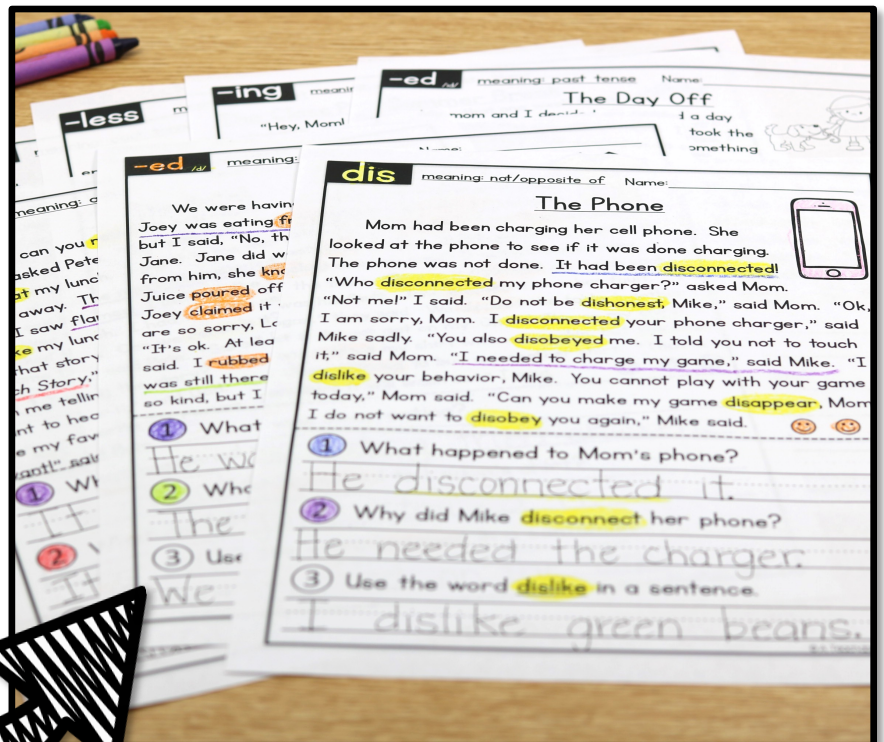 -ed /d/ meaning: past tense Name:
The Day Off
mom and I
a day
took the
-ing
"Hey, Mom!
-less
-ed /d/ meaning:
We were
Joey was eating
but I said, "No,
Jane. Jane did
from him, she
Juice poured off
Joey claimed it
are so sorry,
"It's ok. At
said. I rubbed
was still there
so kind, but I
1 What
He
2
The
3 Use
We
meaning:
can you
asked Pete
my
away.
I saw
my
that story
Story,"
me
to
my
1
It
2
It
dis meaning: not/opposite of Name:
The Phone
Mom had been charging her cell phone. She
looked at the phone to see if it was done charging.
The phone was not done. It had been disconnected!
"Who disconnected my phone charger?" asked Mom.
"Not me!" I said. "Do not be dishonest, Mike," said Mom. "Ok,
I am sorry, Mom. I disconnected your phone charger," said
Mike sadly. "You also disobeyed me. I told you not to touch
it," said Mom. "I needed to charge my game," said Mike. "I
dislike your behavior, Mike. You cannot play with your game
today," Mom said. "Can you make my game disappear, Mom
I do not want to disobey you again," Mike said.
1 What happened to Mom's phone?
He disconnected it.
2 Why did Mike disconnect her phone?
He needed the charger.
3 Use the word dislike in a sentence.
I dislike green beans.